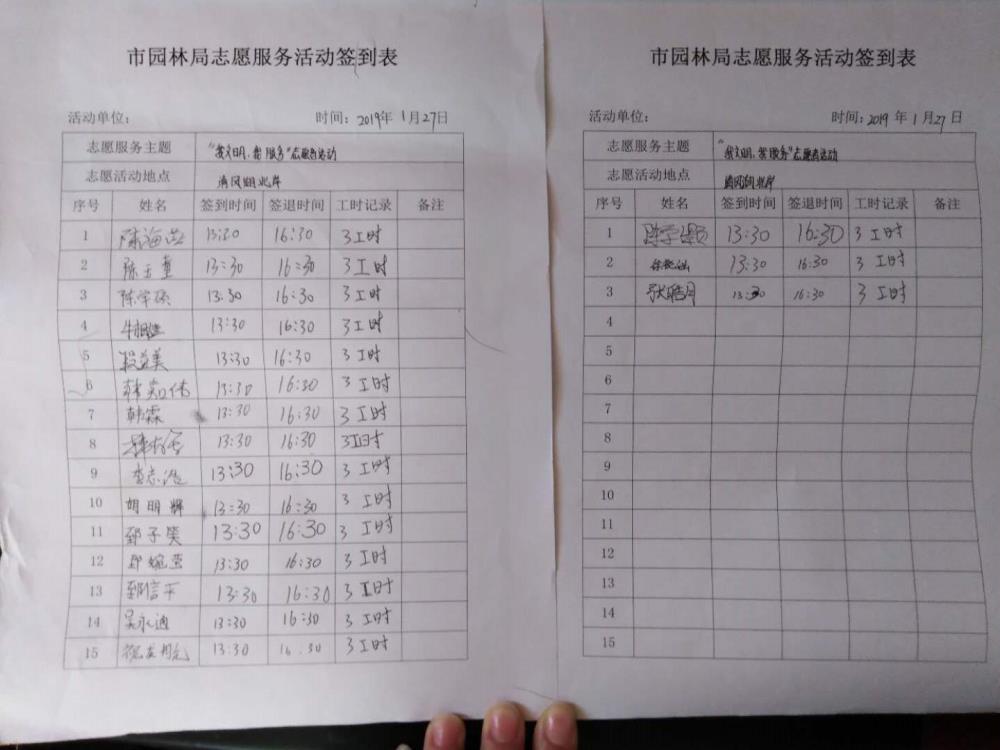 市园林局志愿服务活动签到表
活动单位: 时间: 2019年 1月27日
志愿服务主题 "我文明,我服务"志愿者活动
志愿活动地点 清风湖北岸
序号 姓名 签到时间 签退时间 工时记录 备注
1 陈海 13:30 16:30 3工时
2 陈玉 13:30 16:30 3工时
3 陈学硕 13:30 16:30 3工时
4 牛 13:30 16:30 3工时
5 段益美 13:30 16:30 3工时
6 韩 伟 13:30 16:30 3工时
7 韩霖 13:30 16:30 3工时
8 13:30 16:30 3工时
9 李志 13:30 16:30 3工时
10 胡明辉 13:30 16:30 3工时
11 郅子笑 13:30 16:30 3工时
12 婉莹 13:30 16:30 3工时
13 信 13:30 16:30 3工时
14 吴永通 13:30 16:30 3工时
15 13:30 16.30 3工时
市园林局志愿服务活动签到表
活动单位: 时间: 2019 年 1 月 27 日
志愿服务主题 "我文明,我服务"志愿者活动
志愿活动地点 清风湖北岸
序号 姓名 签到时间 签退时间 工时记录 备注
1 陈学 13:30 16:30 3 工时
2 徐 13:30 16:30 3 工时
3 张皓月 13:30 16:30 3 工时
4
5
6
7
8
9
10
11
12
13
14
15